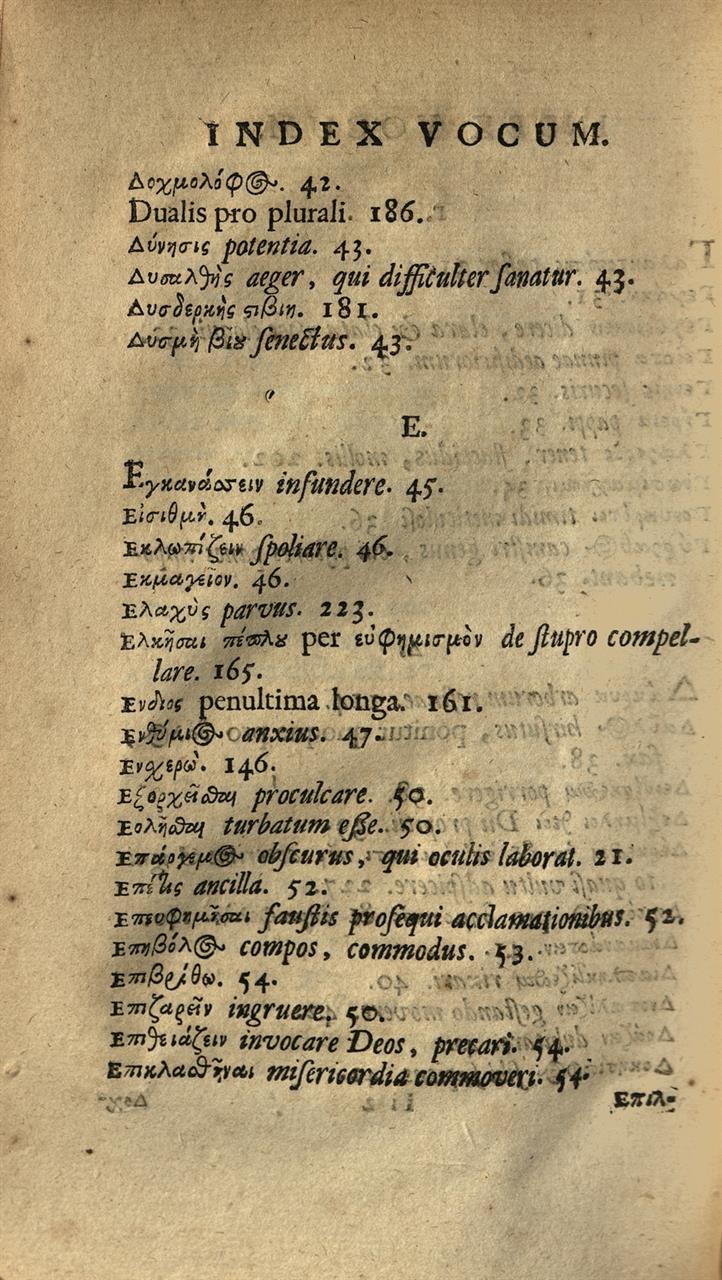 INDEX VOCUM.
Δοχμολόφος. 42.
Dualis pro plurali. 186.
Δύνησις potentia. 43.
Δυσαλθὴς aeger, qui difficulter sanatur. 43.
Δυσδερκὴς στίβιη. 181.
Δυσμὴ βίου senectus. 43.
E.
Εγκανάσσειν infundere. 45.
Εἰσιθμὴ. 46.
Εκλωπίζειν spoliare. 46.
Εκμαγεῖον. 46.
Ελαχὺς parvus. 223.
Ελκῆσαι πέπλου per εὐφημισμὸν de stupro compel-
lare. 165.
Ενδιος penultima longa. 161.
Ενθύμιος anxius. 47.
Ενοχερώ. 146.
Εξορχεῖσθαι proculcare. 50.
Εολῆσθαι turbatum esse. 50.
Επάργεμος obscurus, qui oculis laborat. 21.
Επέτις ancilla. 52.
Επευφημῆσαι faustis prosequi acclamationibus. 52.
Επηβόλος compos, commodus. 53.
Επιβρίθω. 54.
Επιζαρεῖν ingruere. 50.
Επιθειάζειν invocare Deos, precari. 54.
Επικλασθῆναι misericordia commoveri. 54.
Επιλ-